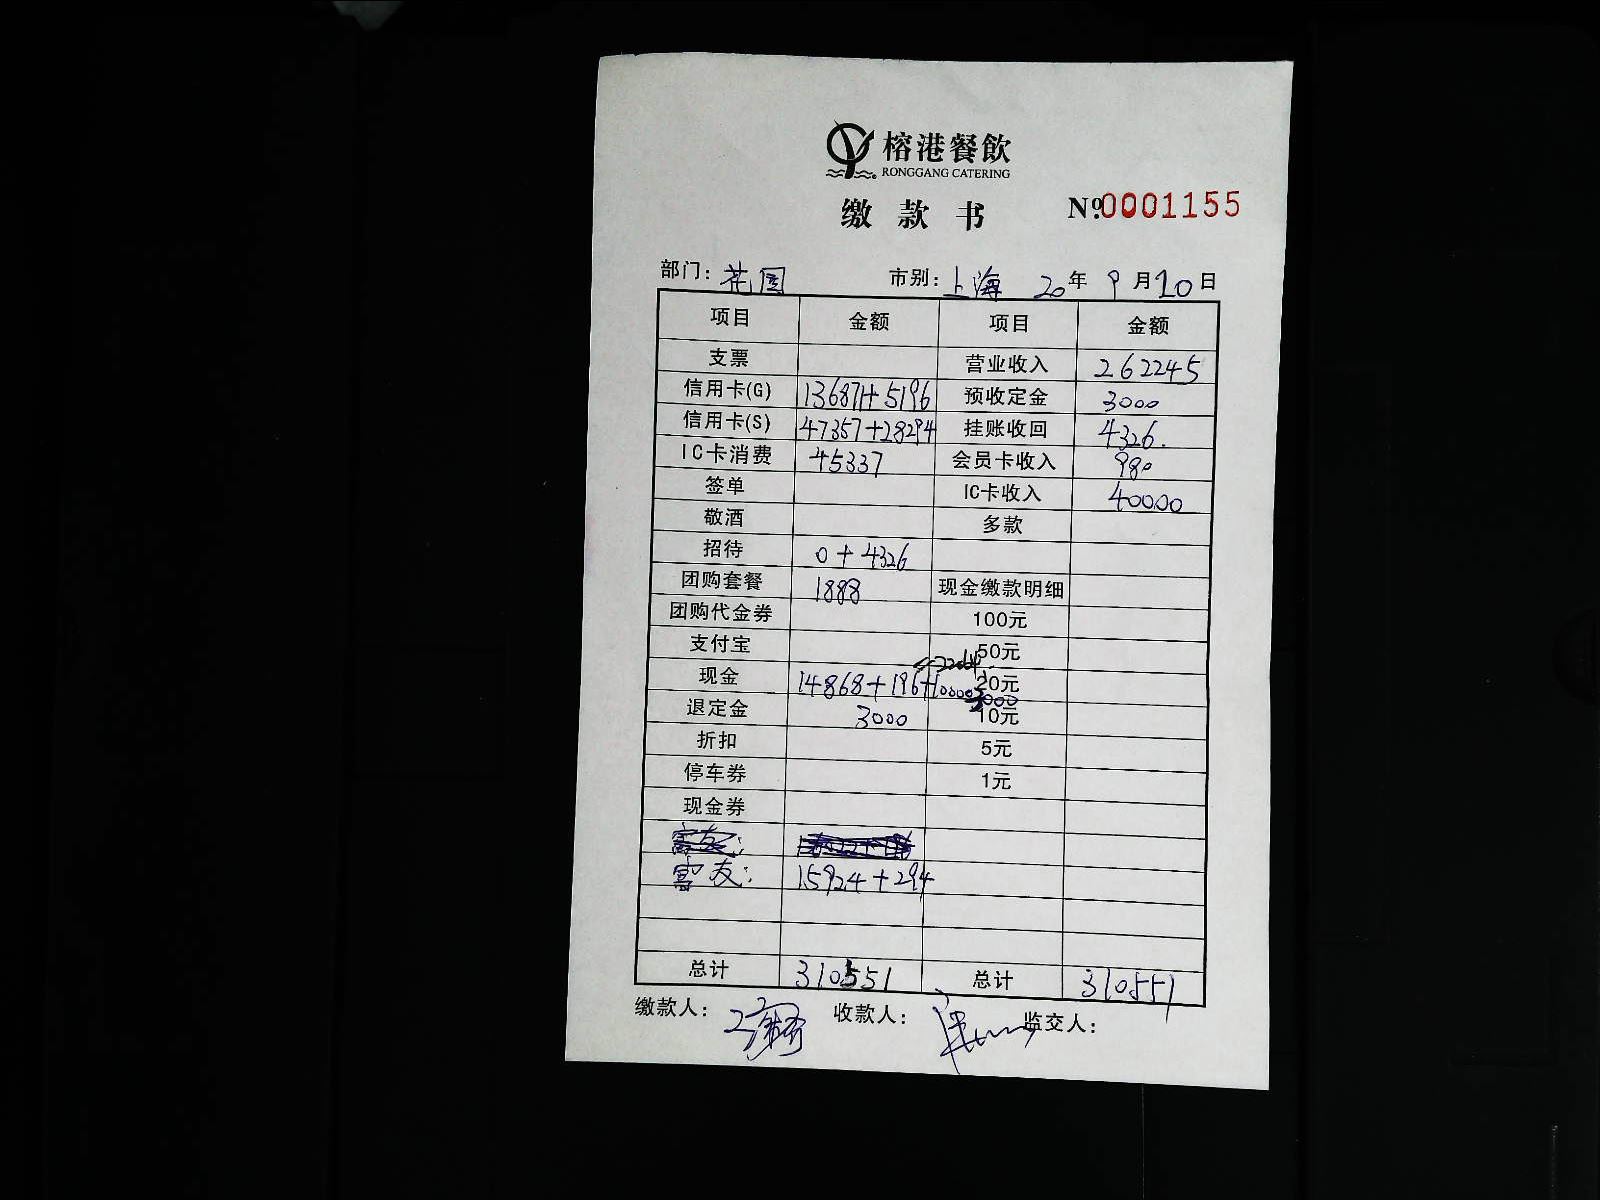 榕港餐飲
RONGGANG CATERING
缴款书 №0001155
部门：花园 市别：上海 20年9月10日
项目 金额 项目 金额
支票 营业收入 262245
信用卡(G) 136871+5196 预收定金 3000
信用卡(S) 47357+28294 挂账收回 4326.
IC卡消费 45337 会员卡收入 980
签单 IC卡收入 40000
敬酒 多款
招待 0+4326
团购套餐 1888 现金缴款明细
团购代金券 100元
支付宝 50元
现金 14868+196+10000 20元
退定金 3000 10元
折扣 5元
停车券 1元
现金券
客友： 15924+294
总计 310551 总计 310551
缴款人： 收款人： 监交人：